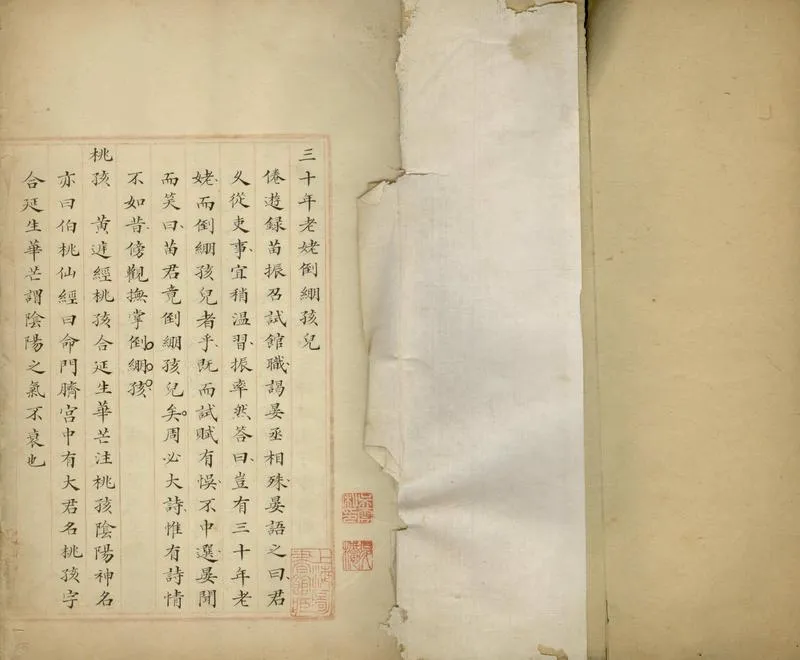 三十年老姥倒綳孩兒
倦遊録苗振召試館職謁晏丞相殊晏語之曰君
久從吏事宜稍温習振率然答曰豈有三十年老
姥而倒綳孩兒者乎既而試賦有悞不中選晏聞
而笑曰苗君竟倒綳孩兒矣周必大詩惟有詩情
不如昔傍觀撫掌倒綳孩
桃孩 黄庭經桃孩合延生華芒注桃孩陰陽神名
亦曰伯桃仙經曰命門臍宫中有大君名桃孩字
合延生華芒謂陰陽之氣不衰也
上海圖書館藏